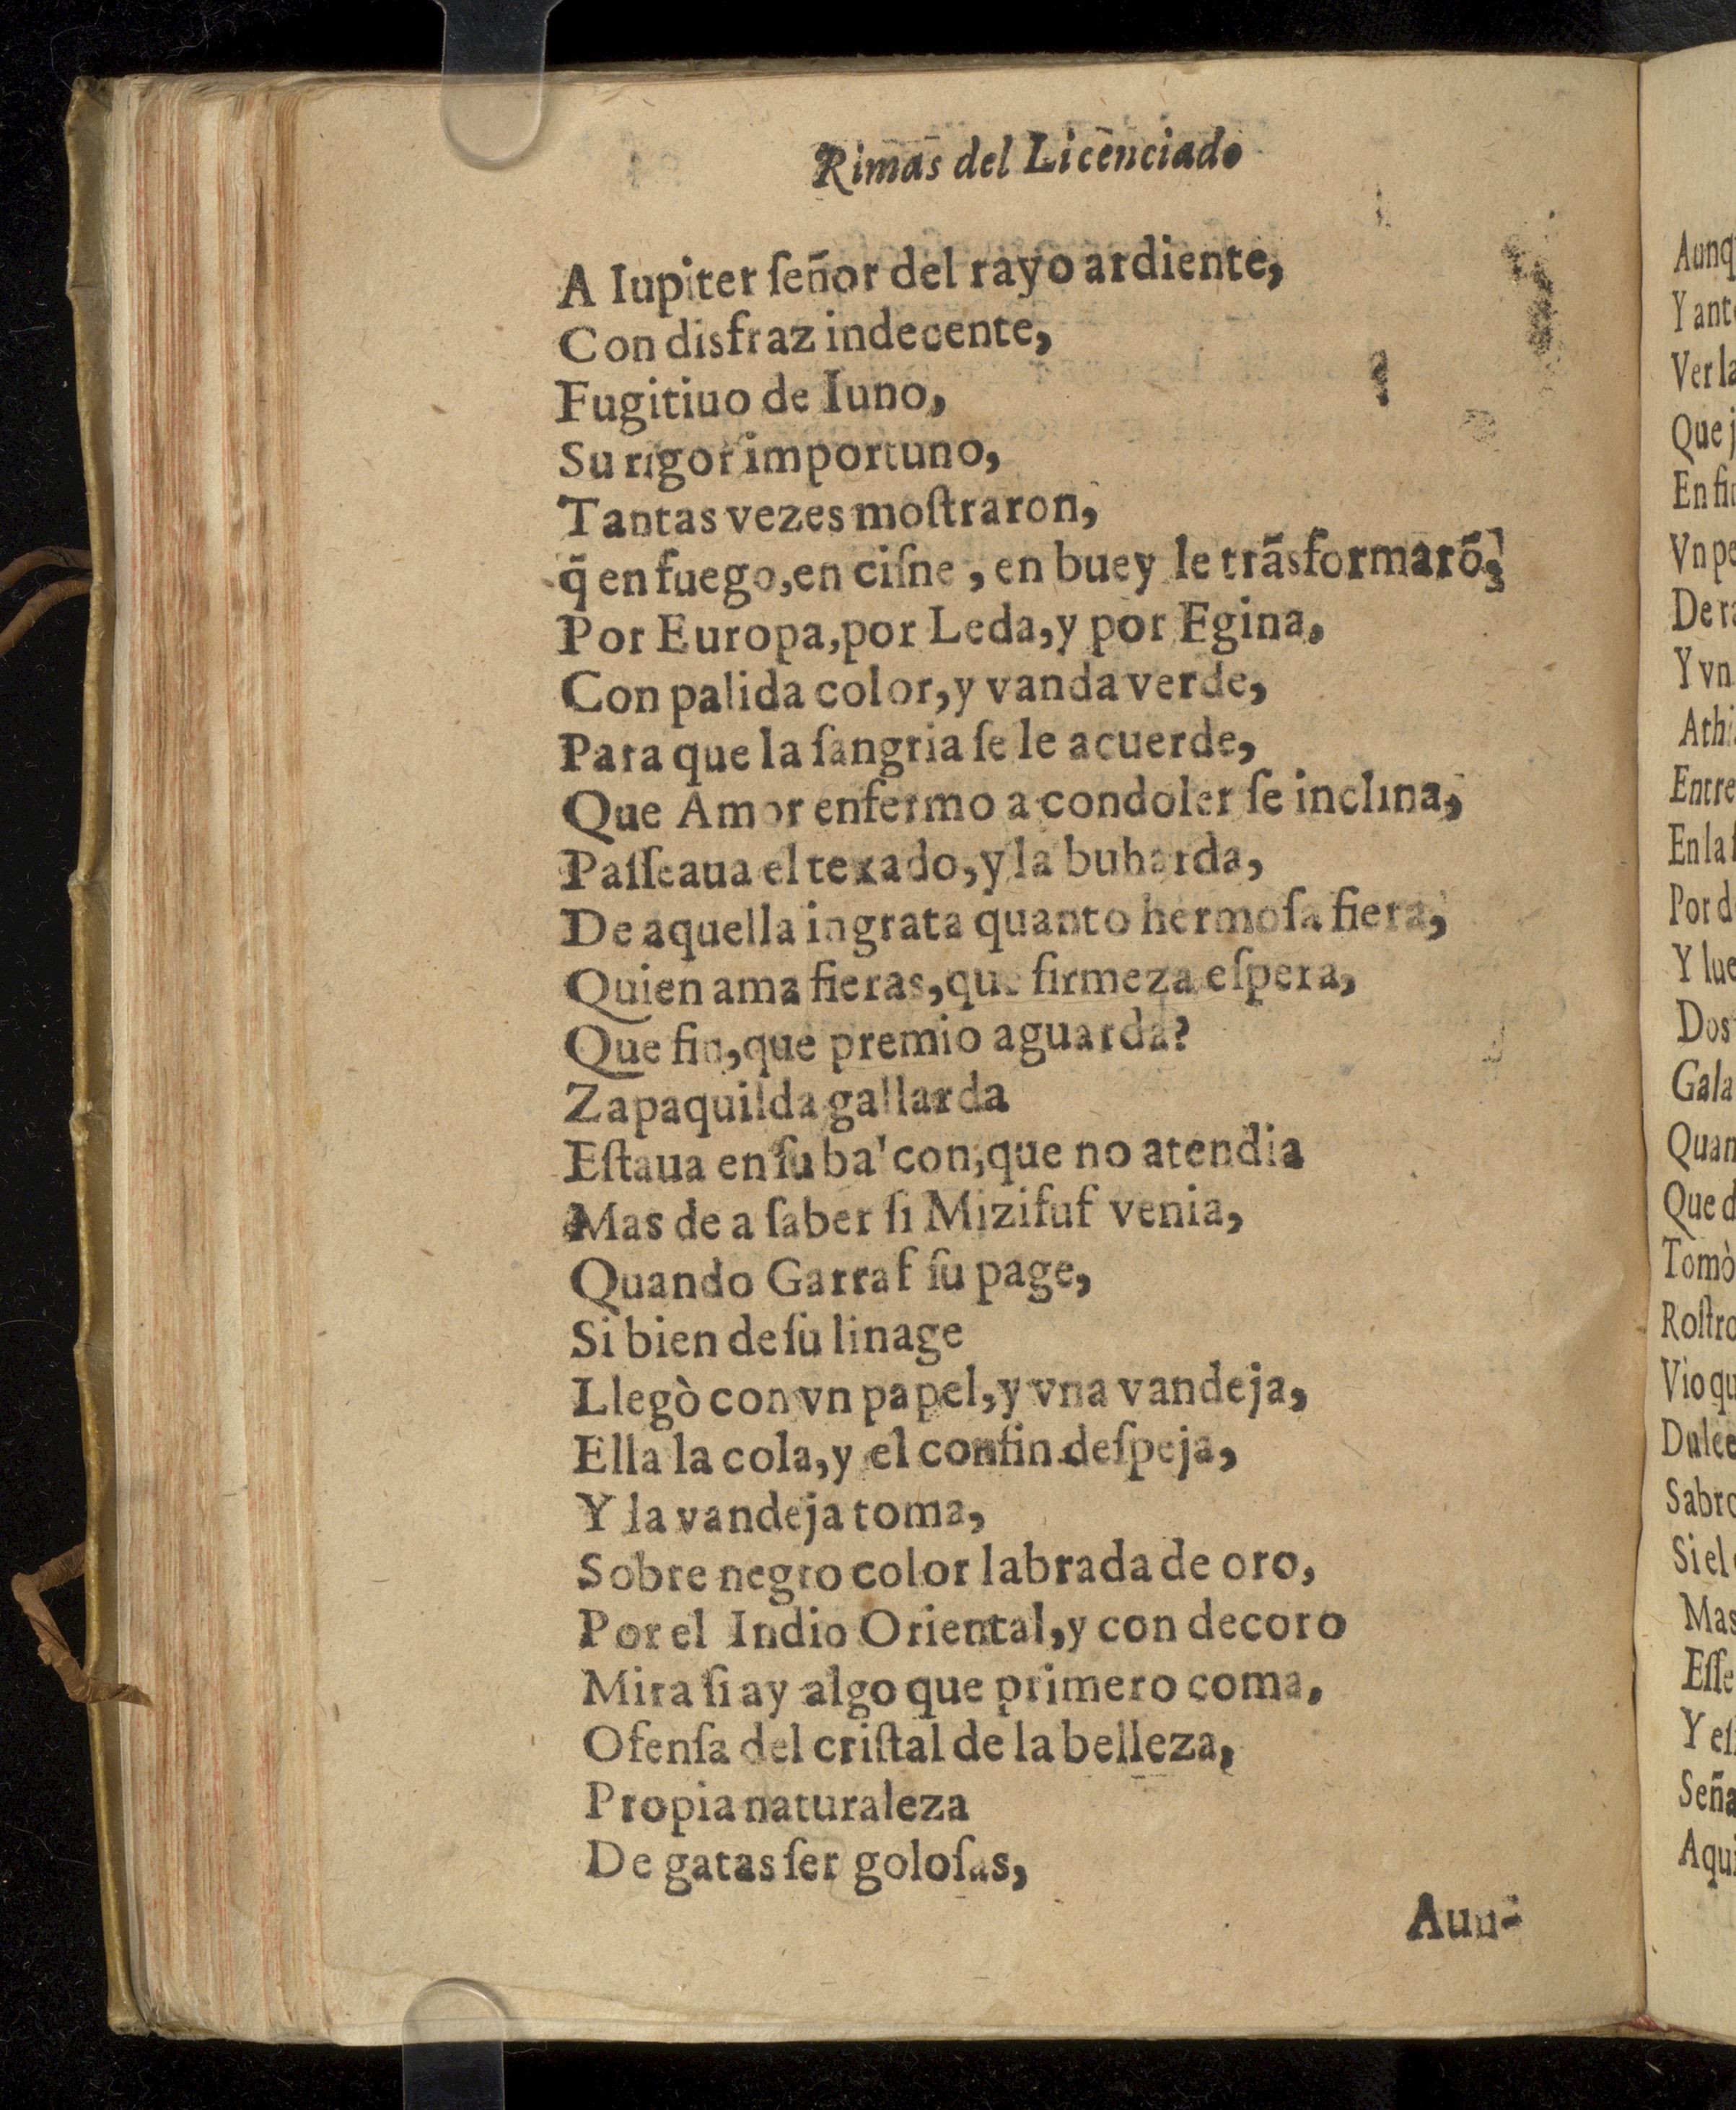 Rimas del Licenciado
A Iupiter ſeñor del rayo ardiente,
Con disfraz indecente,
Fugitiuo de Iuno,
Su rigor importuno,
Tantas vezes moſtraron,
q̃ en fuego,en ciſne , en buey le trãsformarõ,
Por Europa,por Leda,y por Egina,
Con palida color,y vanda verde,
Para que la ſangria ſe le acuerde,
Que Amor enfermo a condoler ſe inclina,
Paſſeaua el texado,y la buharda,
De aquella ingrata quanto hermoſa fiera,
Quien ama fieras,que firmeza eſpera,
Que fin,que premio aguarda?
Zapaquilda gallarda
Eſtaua en ſu balcon,que no atendia
Mas de a ſaber ſi Mizifuf venia,
Quando Garraf ſu page,
Si bien de ſu linage
Llegò con vn papel,y vna vandeja,
Ella la cola,y el confin deſpeja,
Y la vandeja toma,
Sobre negro color labrada de oro,
Por el Indio Oriental,y con decoro
Mira ſi ay algo que primero coma,
Ofenſa del criſtal de la belleza,
Propia naturaleza
De gatas ſer goloſas,
Aun-
Aunq
Y ant
Ver la
Que j
En fi
Vn pe
De ra
Y vn
Athi
Entre
En la
Por d
Y lue
Dos
Gala
Quan
Que d
Tomò
Roſtro
Vio qu
Dulce
Sabro
Si el
Mas
Eſſe
Y eſ
Seña
Aqui